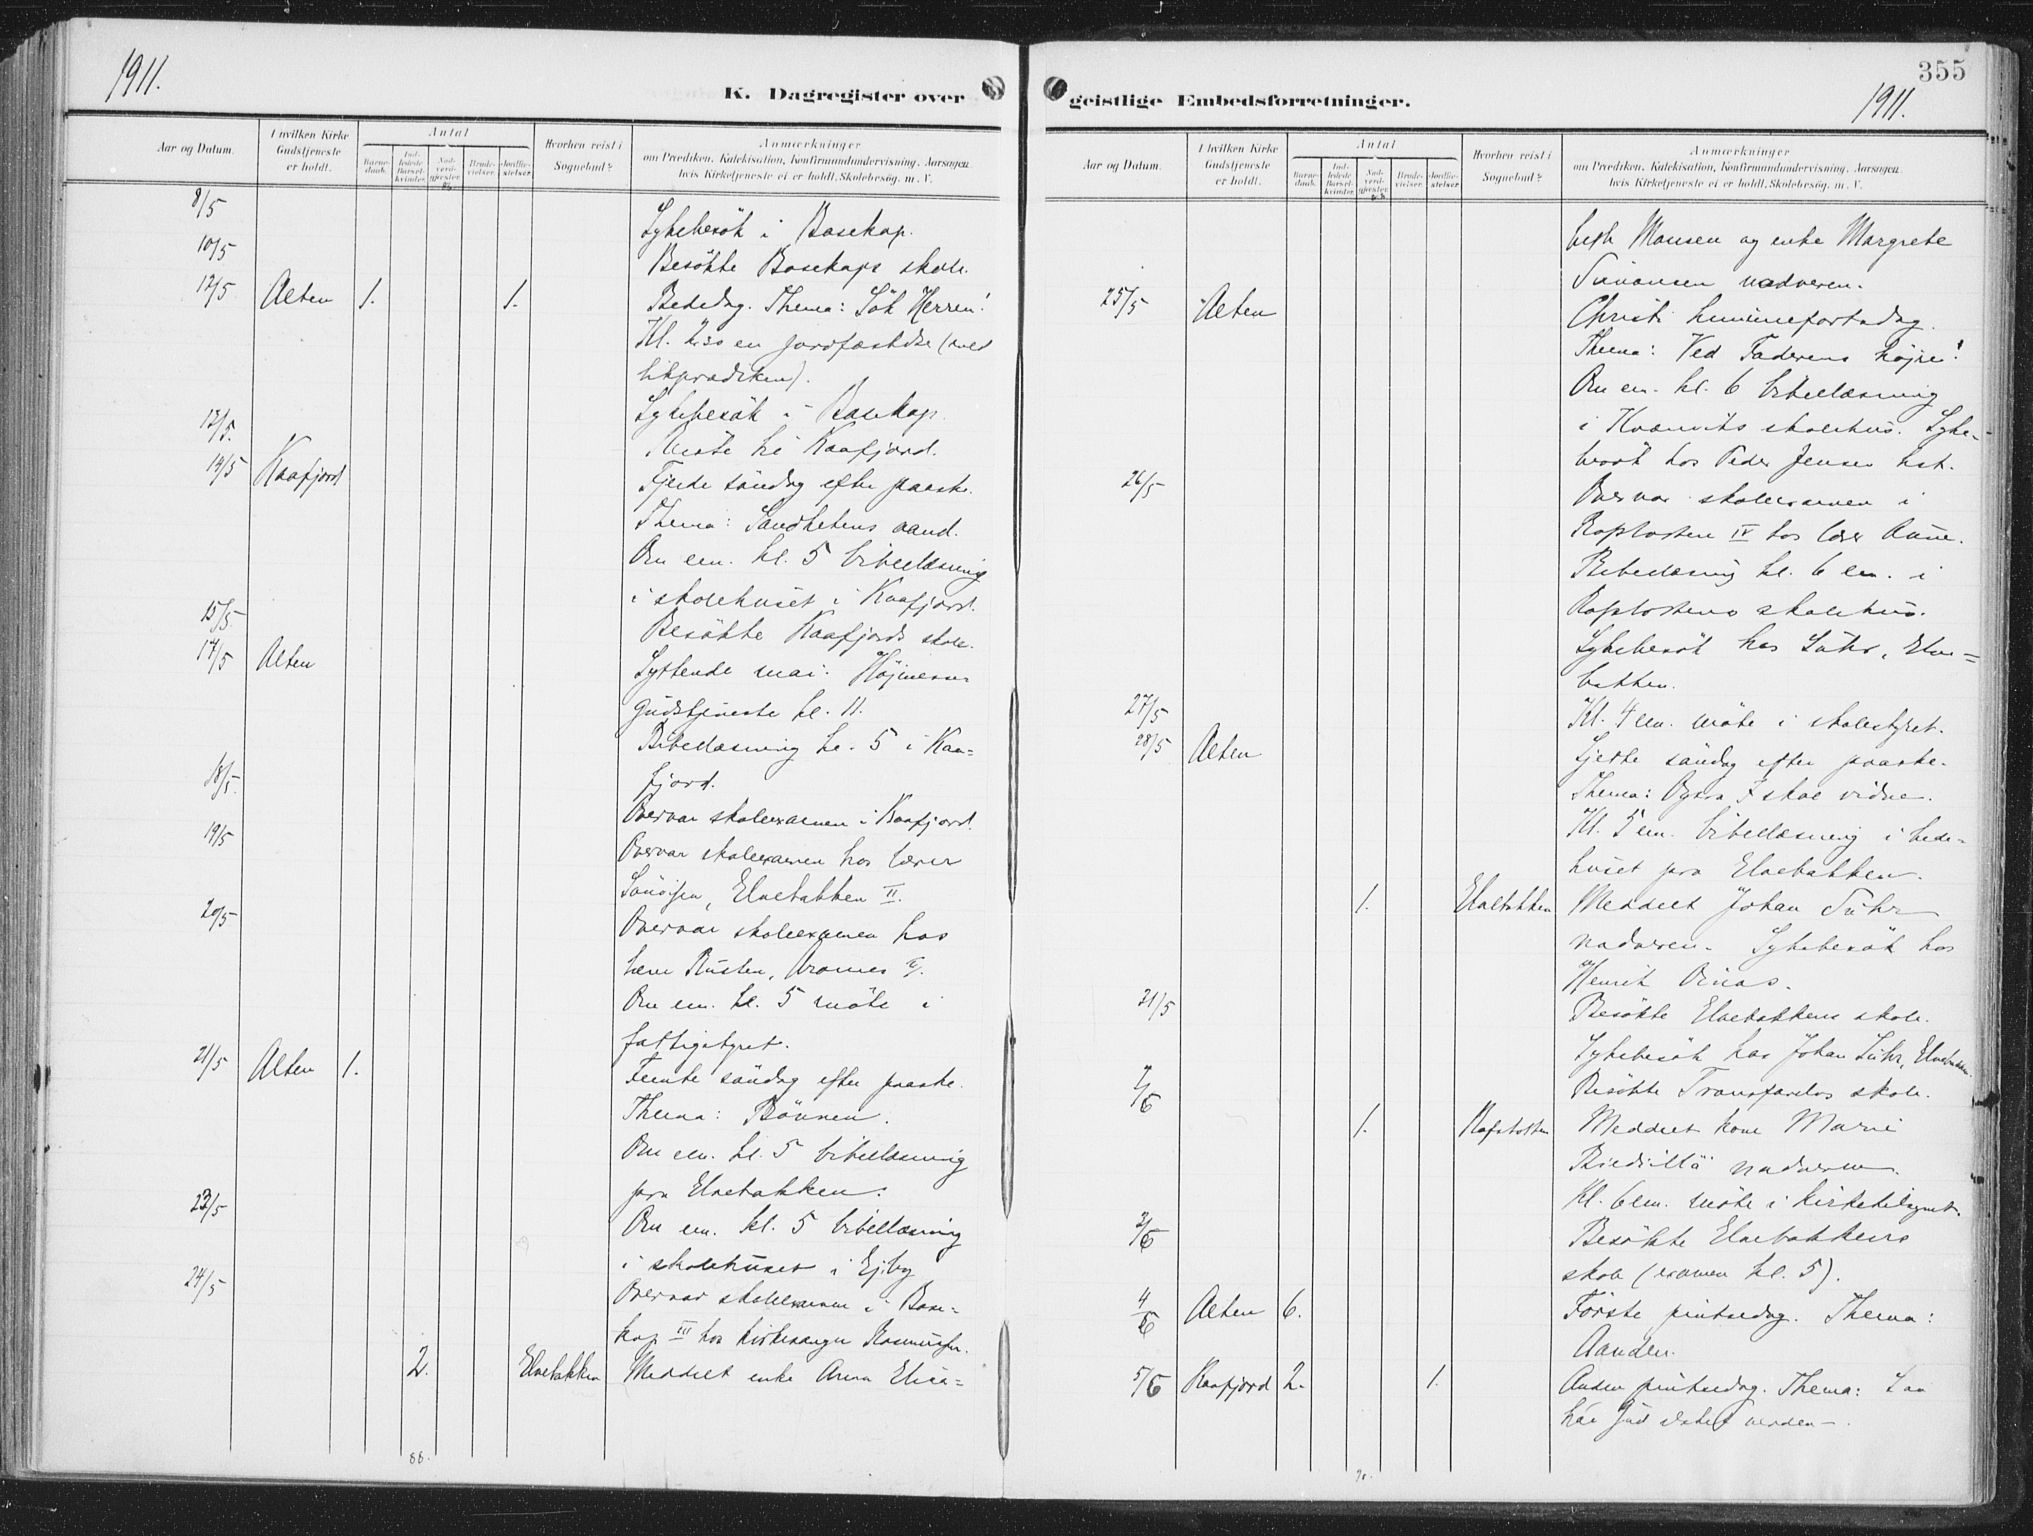 1911.
K. Dagregister over
Aar og Datum.
I hvilken Kirke Gudstjeneste er holdt.
Antal
Barnedaab.
Indledede Barselkvinder.
Nadverdgjester
Brudevielser.
Jordfæstelser.
Hvorhen reist i Sognebud?
Anmærkninger
om Prædiken, Katekisation, Konfirmandundervisning, Aarsagen
hvis Kirketjeneste ei er holdt, Skolebesøg. m. V.
8/5 Sykebesök i Bosekop.
10/5 Besökte Bosekops skole.
12/5 Alten 1. 1. Bededag. Thema: Søk Herren!
Kl. 2.30 en jordfæstelse (med
likprædiken).
Sykebesök i Bosekop.
Møte hi Kaafjord.
14/5 Kaafjord Fjerde søndag efter paaske.
Thema: Sandhetens aand.
Om em. kl. 5 bibellæsning
i skolehuset i Kaafjord.
15/5 Besökte Kaafjords skole.
17/5 Alten Syttende mai. Højmesse
gudstjeneste kl. 11.
Bibellæsning kl. 5 i Kaa-
fjord.
18/5 Overvar skoleexamen i Kaafjord.
19/5 Overvar skoleexamen hos lærer
Elvebakken II.
20/5 Overvar skoleexamen hos
lærer
Om em. kl. 5 møte i
fattigstyret.
21/5 Alten 1. Femte søndag efter paaske.
Thema: Bønnen.
Om em. kl. 5 bibellæsning
paa Elvebakken.
23/5 Om em. kl. 5 bibellæsning
i skolehuset i
24/5 Overvar skoleexamen i Bose-
kop III hos kirkesanger Rasmussen.
2. Elvebakken Meddelt enke Anna Elisa-
88.
355
1911.
geistlige Embedsforretninger.
Aar og Datum.
I hvilken Kirke Gudstjeneste er holdt.
Antal
Barnedaab.
Indledede Barselkvinder.
Nadverdgjester
Brudevielser.
Jordfæstelser.
Hvorhen reist i Sognebud?
Anmærkninger
om Prædiken, Katekisation, Konfirmandundervisning, Aarsagen
hvis Kirketjeneste ei er holdt, Skolebesøg. m. V.
beth Monsen og enke Margrete
nadveren.
25/5 Alten Christi himmelfartsdag.
Thema: Ved Faderens højre!
Om em. kl. 6 bibellæsning
i Kvænviks skolehus. Syke-
besök hos Peder Jensen
26/5 Overvar skoleexamen i
IV hos lærer Aune.
Bibellæsning kl. 6 em. i
skolehus.
Sykebesök hos Suhr, Elve-
bakken.
27/5 Kl. 4 em. møte i skolestyret.
28/5 Alten Sjette søndag efter paaske.
Thema: Ogsaa I skal vidne.
Kl. 5 em. bibellæsning i bede-
huset paa Elvebakken.
1. Elvebakken Meddelt Johan Suhr
nadveren. Sykebesök hos
Henrik
31/5 Besökte Elvebakkens skole.
Sykebesök hos Johan Suhr, Elvebakken.
Besökte Tranfarelvs skole.
1. Meddelt kone Marie
nadveren.
Kl. 6 em. møte i kirketilsynet.
Besökte Elvebakkens
skole (examen kl. 5).
4/6 Alten 6. Første pintsedag. Thema:
Aanden.
5/6 Kaafjord 2. 1. Anden pintsedag. Thema: Saa
har Gud elsket verden –.